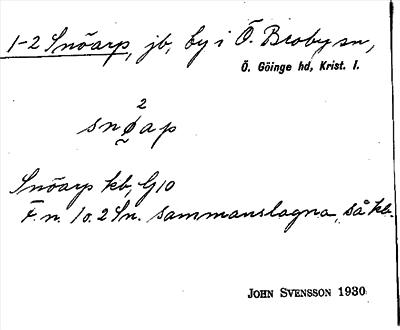 1-2 Snöarp, jb, by i Ö. Broby sn,
Ö. Göinge hd, Krist. l.
2
snø̰ap
Snöarp kb, G10
F. n. 1 o. 2 Sn. sammanslagna, så kb.
JOHN SVENSSON 1930